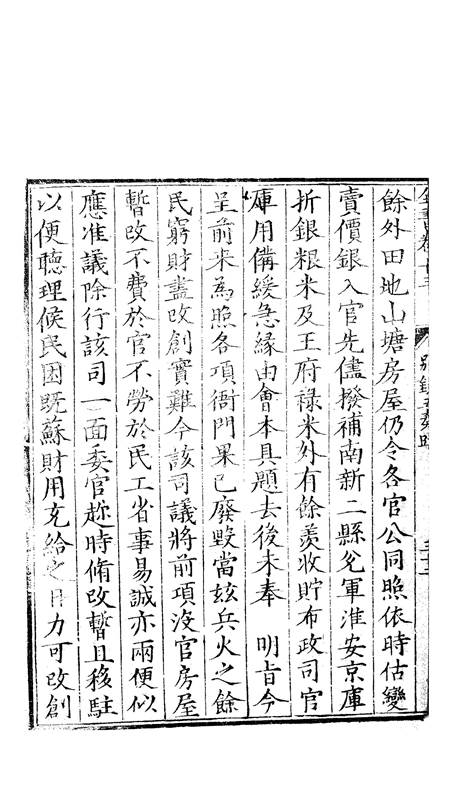 餘外田地山塘房屋仍令各官公同照依時估變
賣價銀入官先儘撥補南新二縣兊軍淮安京庫
折銀粮米及王府祿米外有餘羨收貯布政司官
庫用備緩急緣由會本具題去後未奉　明旨今
呈前来為照各項衙門果已廢毀當兹兵火之餘
民窮財盡改創實難今該司議將前項没官房屋
暫改不費於官不勞於民工省事易誠亦兩便似
應准議除行該司一面委官趂時脩改暫且移駐
以便聽理候民困既蘇財用充給之日力可改創